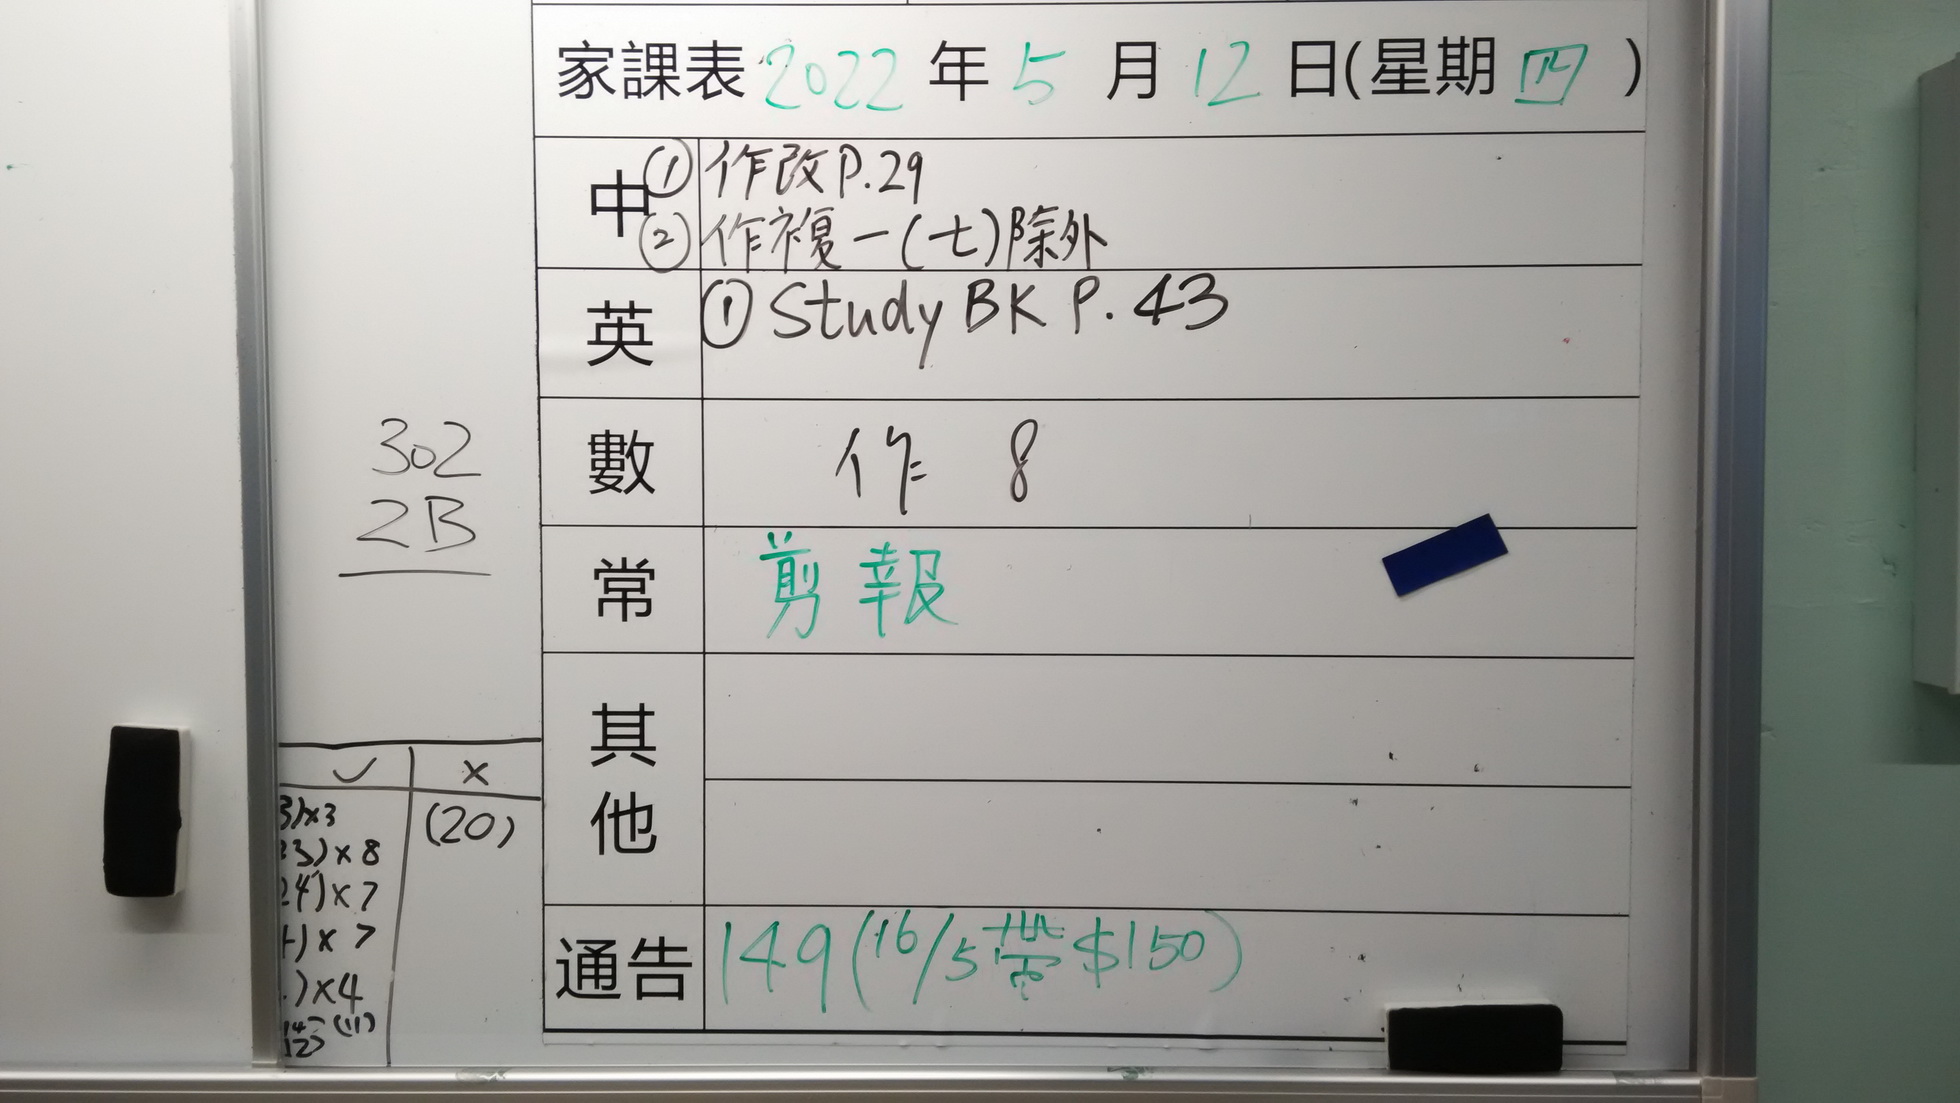 家課表 2022 年 5 月 12 日(星期 四 )
中
① 作改P.29
② 作複一(七)除外
英
① Study BK P. 43
數
作 8
常
剪報
其他
通告
149(16/5帶$150)
302
2B
✓ ×
3)×3
(20)
23)×8
24)×7
)×7
)×4
(11)